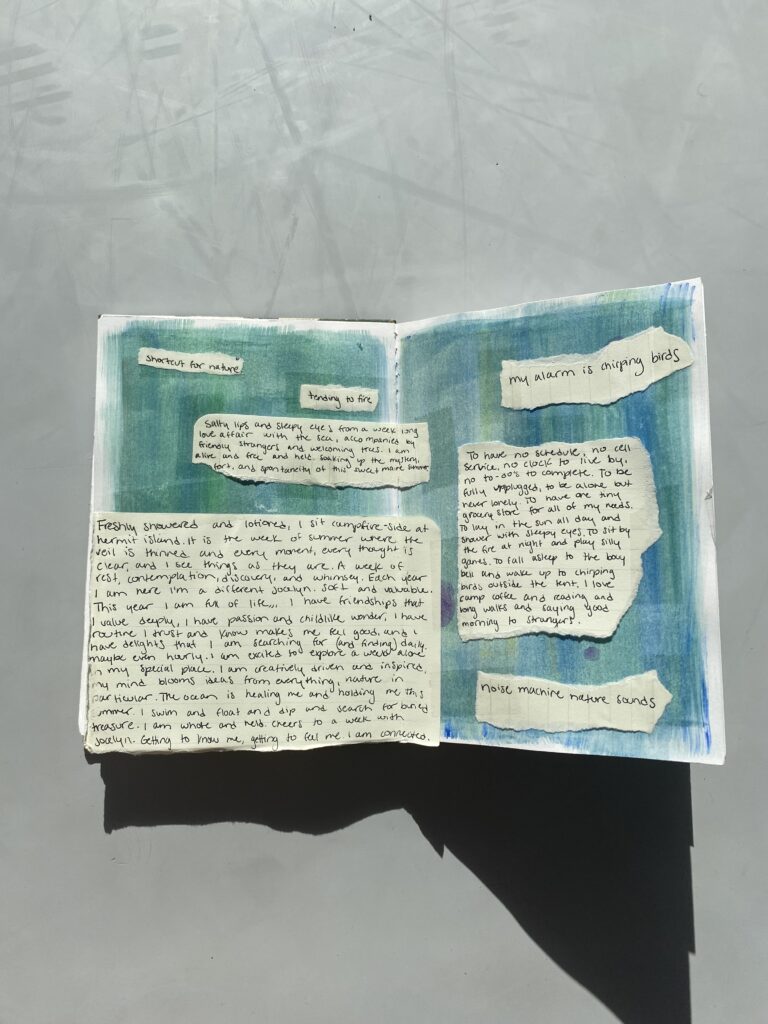 shortcut for nature
tending to fire
Salty lips and sleepy eyes from a week long
love affair with the sea, accompanied by
friendly strangers and welcoming trees. I am
alive and free and held. soaking up the mystery,
fort, and spontaneity of this sweet maine summer
Freshly showered and lotioned, I sit campfire-side at
hermit island. It is the week of summer where the
veil is thinned and every moment, every thought is
clear, and I see things as they are. A week of
rest, contemplation, discovery, and whimsy. Each year
I am here I'm a different jocelyn. Soft and valuable.
This year I am full of life,,, I have friendships that
I value deeply, I have passion and childlike wonder, I have
routine I trust and know makes me feel good, and i
have delights that I am searching for (and finding) daily.
maybe even hourly. I am excited to explore a week alone
in my special place. I am creatively driven and inspired,
my mind blooms ideas from everything, nature in
particular. The ocean is healing me and holding me this
summer. I swim and float and dip and search for buried
treasure. I am whole and held. cheers to a week with
jocelyn. Getting to know me, getting to feel me I am connected.
my alarm is chirping birds
To have no schedule, no cell
service, no clock to live by,
no to-do's to complete. To be
fully unplugged, to be alone but
never lonely. To have one tiny
grocery store for all of my needs.
To lay in the sun all day and
shower with sleepy eyes. To sit by
the fire at night and play silly
games. To fall asleep to the bouy
bell and wake up to chirping
birds outside the tent. I love
camp coffee and reading and
long walks and saying good
morning to strangers.
noise machine nature sounds